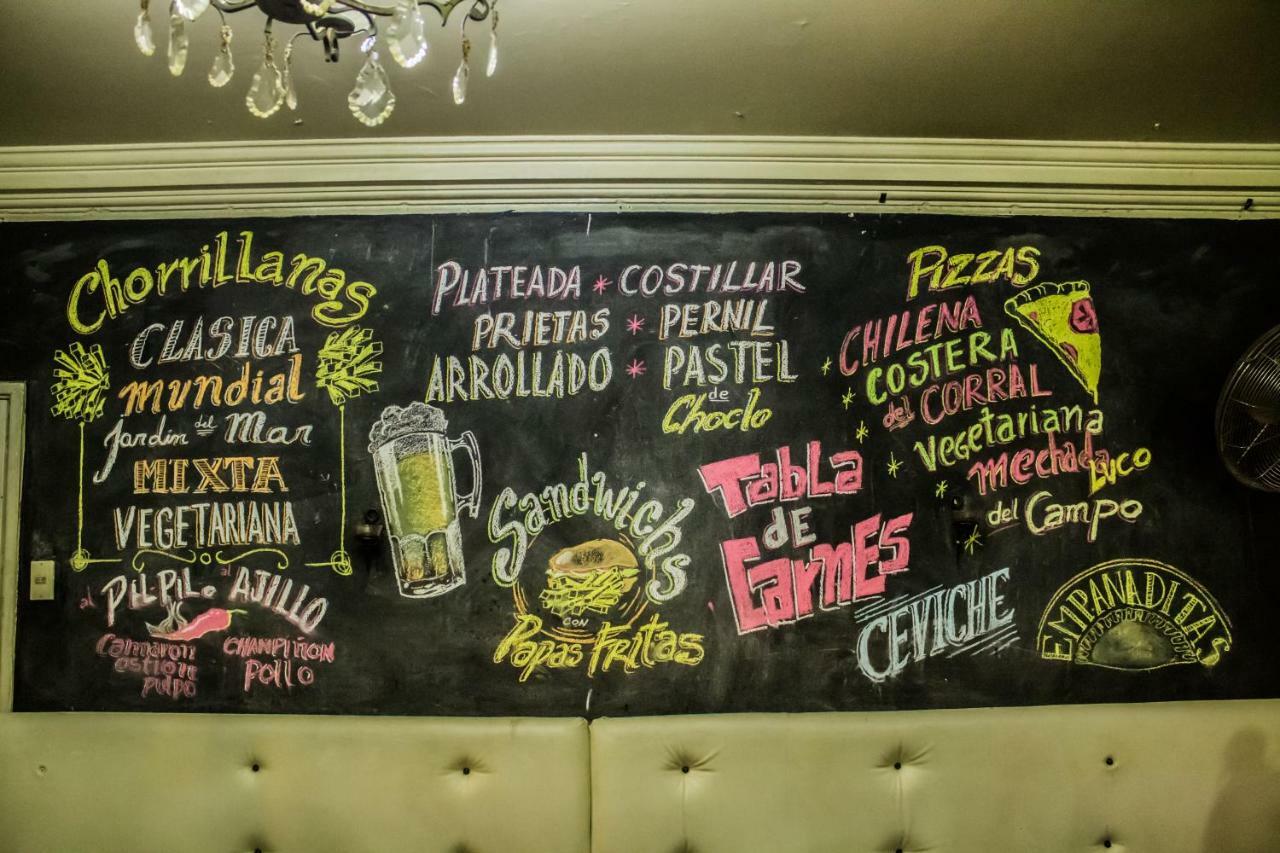 Chorrillanas
CLASICA
mundial
Jardin del Mar
MIXTA
VEGETARIANA
al PILPIL o al AJILLO
Camaron
ostion
pulpo
CHAMPIÑON
POLLO
PLATEADA * COSTILLAR
PRIETAS * PERNIL
ARROLLADO * PASTEL
de
Choclo
Sandwichs
CON
Papas Fritas
TABLA
DE
CARNES
PIZZAS
CHILENA
COSTERA
del CORRAL
Vegetariana
mechada
LUCO
del Campo
CEVICHE
EMPANADITAS